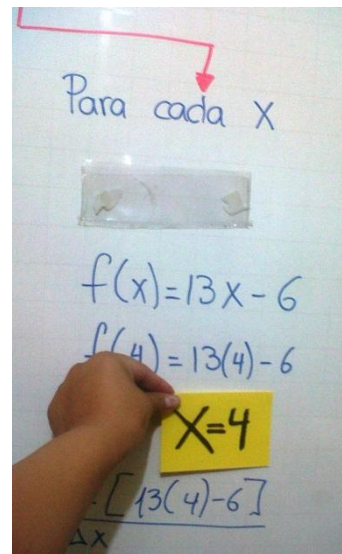 Para cada X
f(x)=13x-6
f(4)=13(4)-6
X=4
-[13(4)-6]
Δx